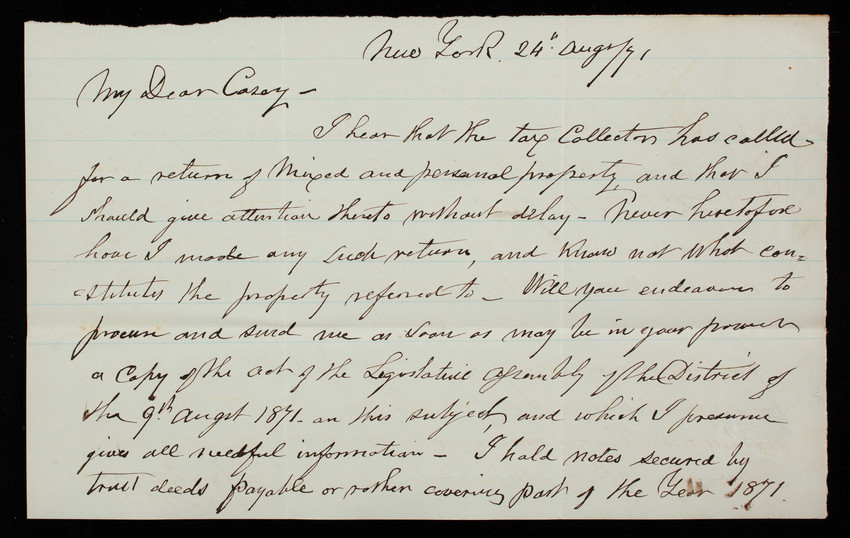 New York. 24" Augst/71
My Dear Casey -
I hear that the tax Collector has called
for a return of Mixed and personal property, and that I
should give attention thereto without delay - Never heretofore
have I made any such return, and know not what con=
=stitutes the property referred to - Will you endeavour to
procure and send me as soon as may be in your power
a copy of the act of the Legislative Assembly of the District of
the 9th Augst 1871 - on this subject, and which I presume
gives all needful information - I hold notes secured by
trust deeds payable or rather covering part of the Year 1871